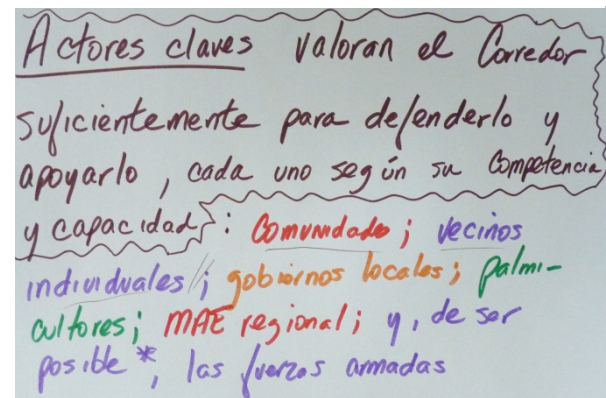 Actores claves valoran el Corredor
suficientemente para defenderlo y
apoyarlo, cada uno según su Competencia
y capacidad: Comunidades; vecinos
individuales; gobiernos locales; palmi-
cultores; MAE regional; y, de ser
posible*, las fuerzas armadas